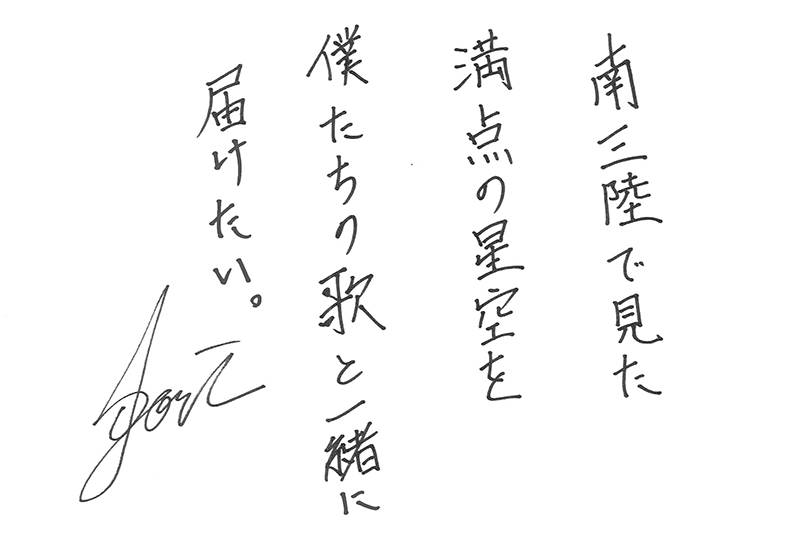 南三陸で見た
満点の星空を
僕たちの歌と一緒に
届けたい。